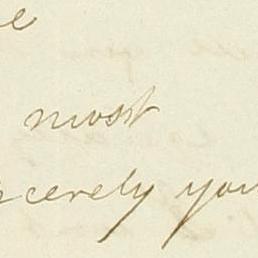 e
most
ncerely you